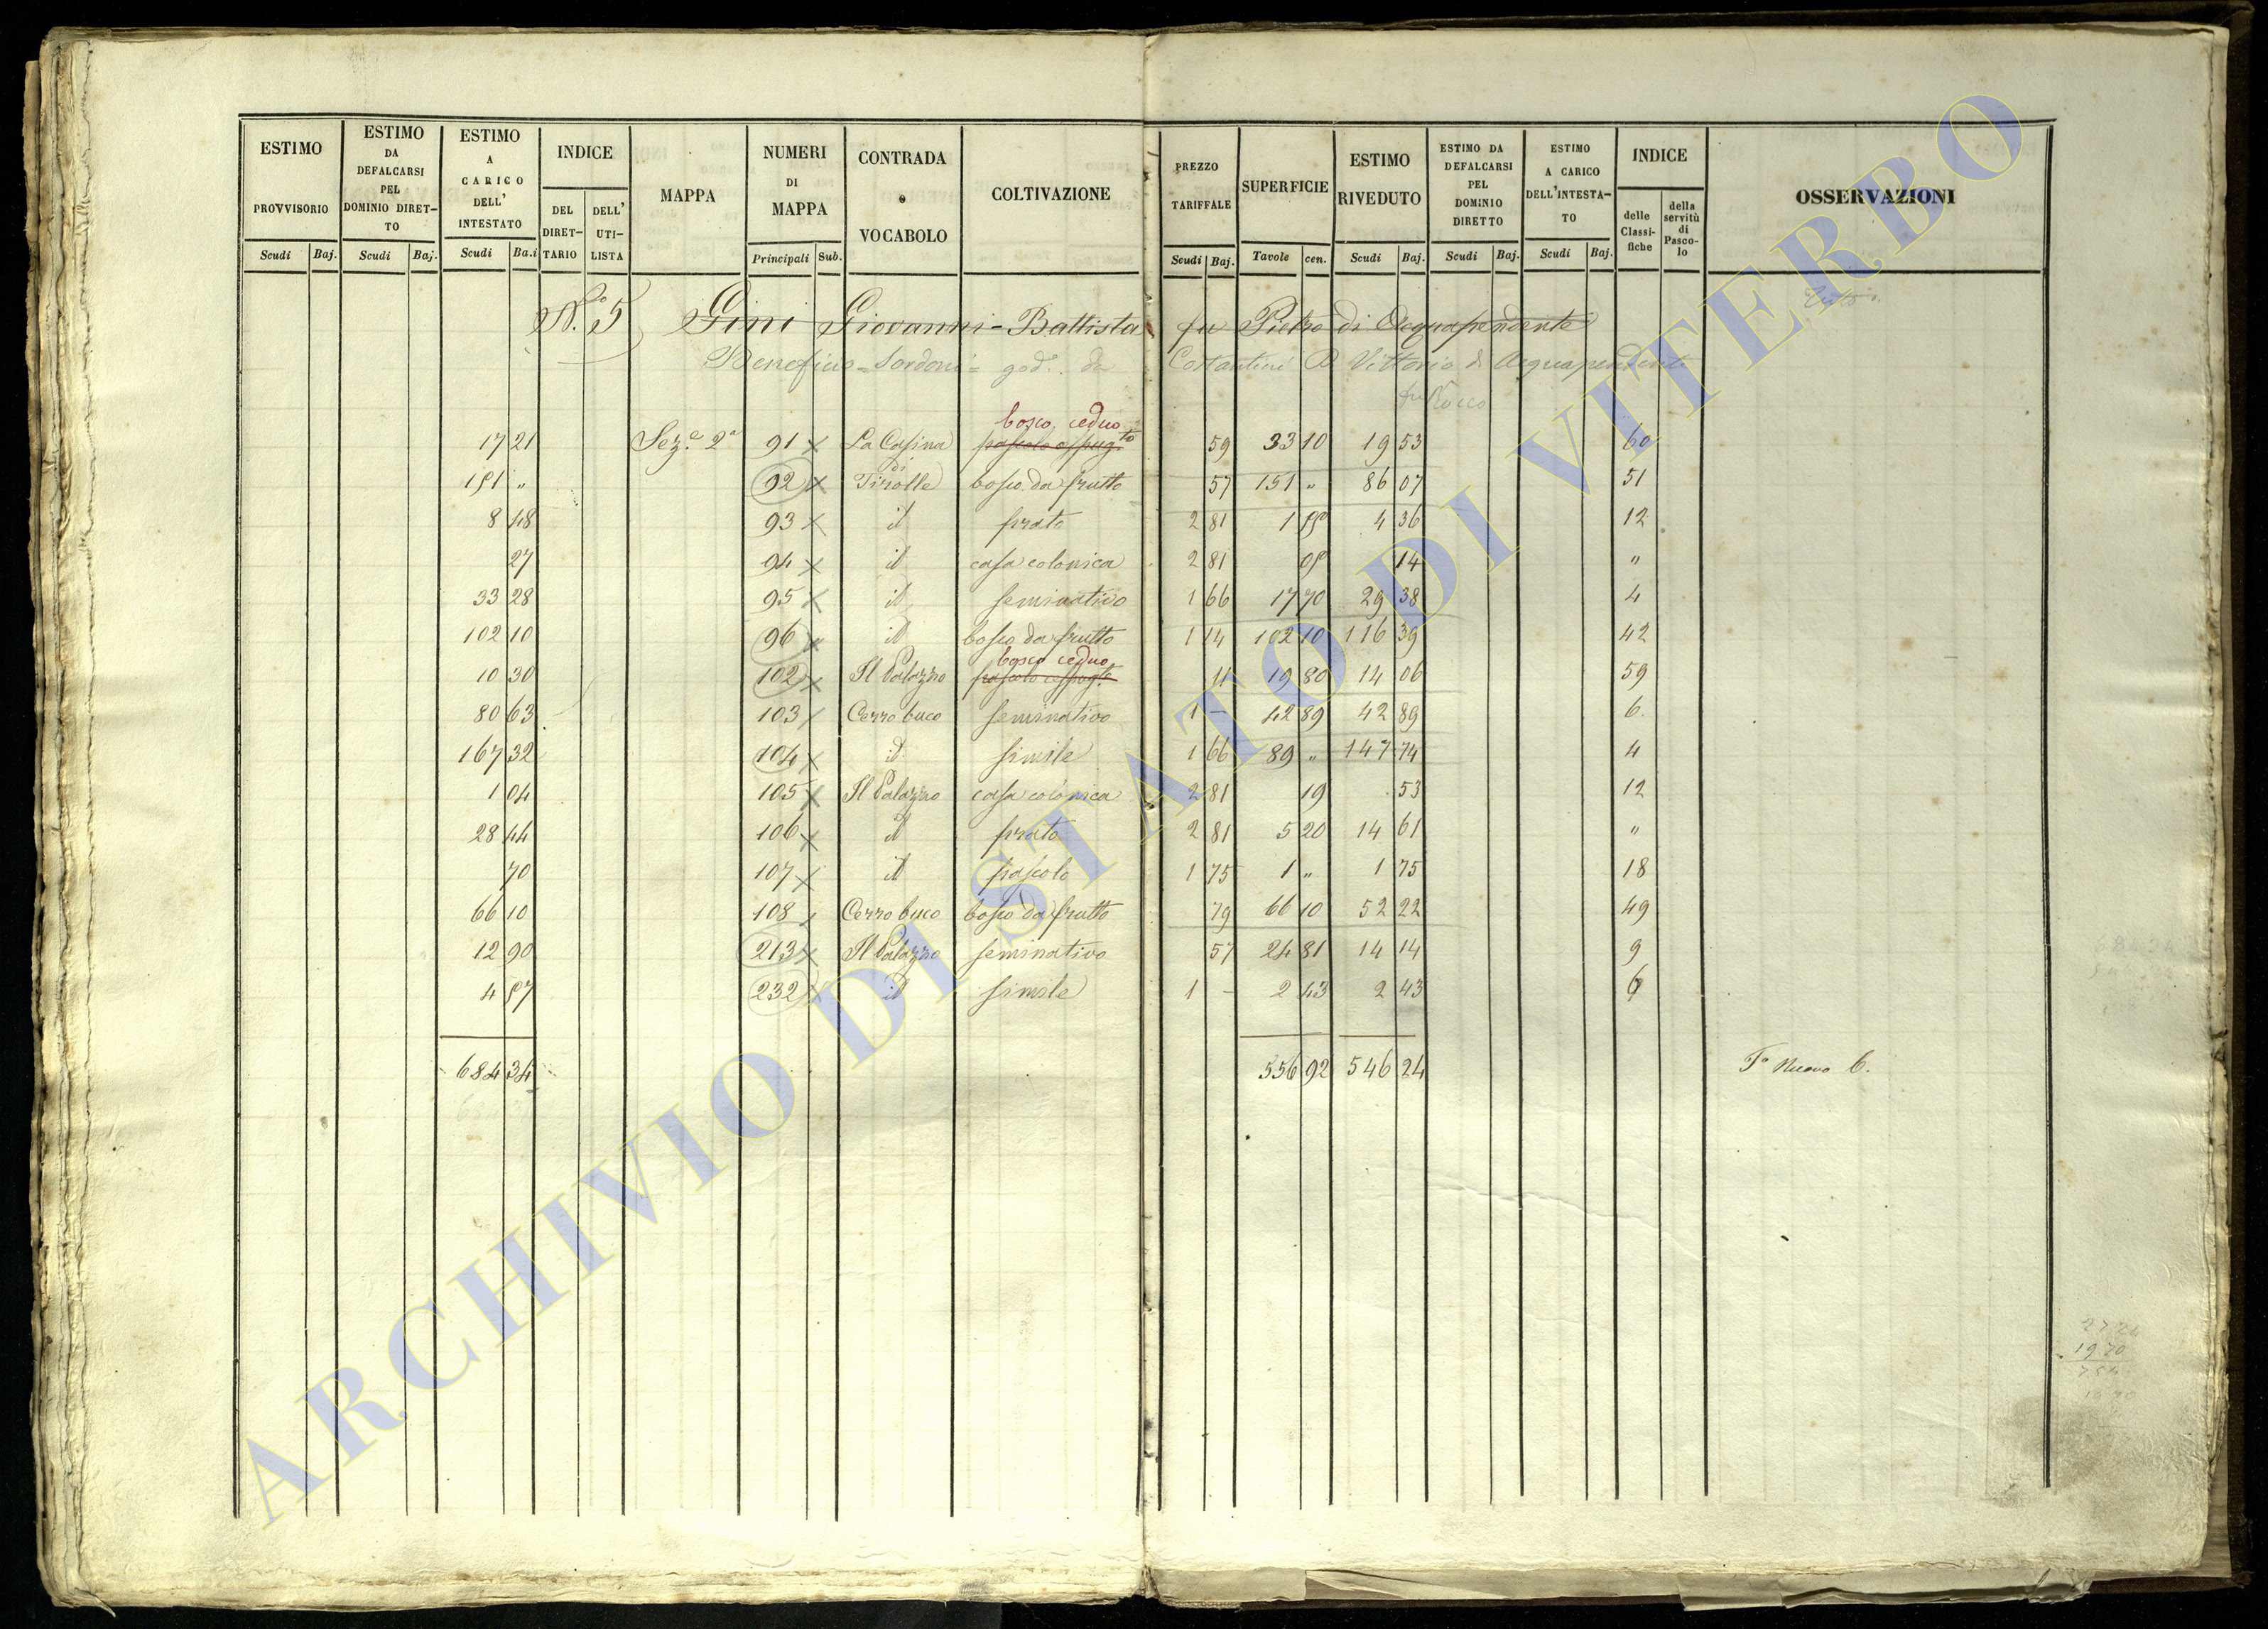 ESTIMO PROVVISORIO | ESTIMO DA DEFALCARSI PEL DOMINIO DIRETTO | ESTIMO A CARICO DELL' INTESTATO | INDICE | MAPPA | NUMERI DI MAPPA | CONTRADA o VOCABOLO | COLTIVAZIONE | PREZZO TARIFFALE | SUPERFICIE | ESTIMO RIVEDUTO | ESTIMO DA DEFALCARSI PEL DOMINIO DIRETTO | ESTIMO A CARICO DELL'INTESTATO | INDICE | OSSERVAZIONI
DEL DIRETTARIO | DELL' UTILISTA | delle Classifiche | della servitù di Pascolo
Scudi | Baj. | Scudi | Baj. | Scudi | Ba.i | Principali | Sub. | Scudi | Baj. | Tavole | cen. | Scudi | Baj. | Scudi | Baj. | Scudi | Baj.
N.° 5 Gini Giovanni-Battista fu Pietro di Acquapendente
Beneficio = Sordoni = god. da Costantini D Vittorio di Acquapendente
fu Rocco
bosco ceduo
17 21 Sez.e 2a 91 x La Casina pascolo cespug.to 59 33 10 19 53 60
di
151 " 92 x Tirolle bosco da frutto 57 151 " 86 07 51
8 48 93 x id prato 2 81 1 55 4 36 12
27 94 x id casa colonica 2 81 05 14 "
33 28 95 x id seminativo 1 66 17 70 29 38 4
102 10 96 x id bosco da frutto 1 14 102 10 116 39 42
bosco ceduo
10 30 102 x Il Palazzo pascolo cespug.to 71 19 80 14 06 59
80 63 103 Cerro buco seminativo 1 - 42 89 42 89 6
167 32 104 x id. simile 1 66 89 " 147 74 4
1 04 105 x Il Palazzo casa colonica 2 81 19 53 12
28 44 106 x id prato 2 81 5 20 14 61 "
70 107 x id pascolo 1 75 1 " 1 75 18
66 10 108 Cerro buco bosco da frutto 79 66 10 52 22 49
12 90 213 x Il Palazzo seminativo 57 24 81 14 14 9
4 57 232 x id simile 1 - 2 43 2 43 6
684 34 556 92 546 24 F.° Nuovo 6.
19 70
ARCHIVIO DI STATO DI VITERBO